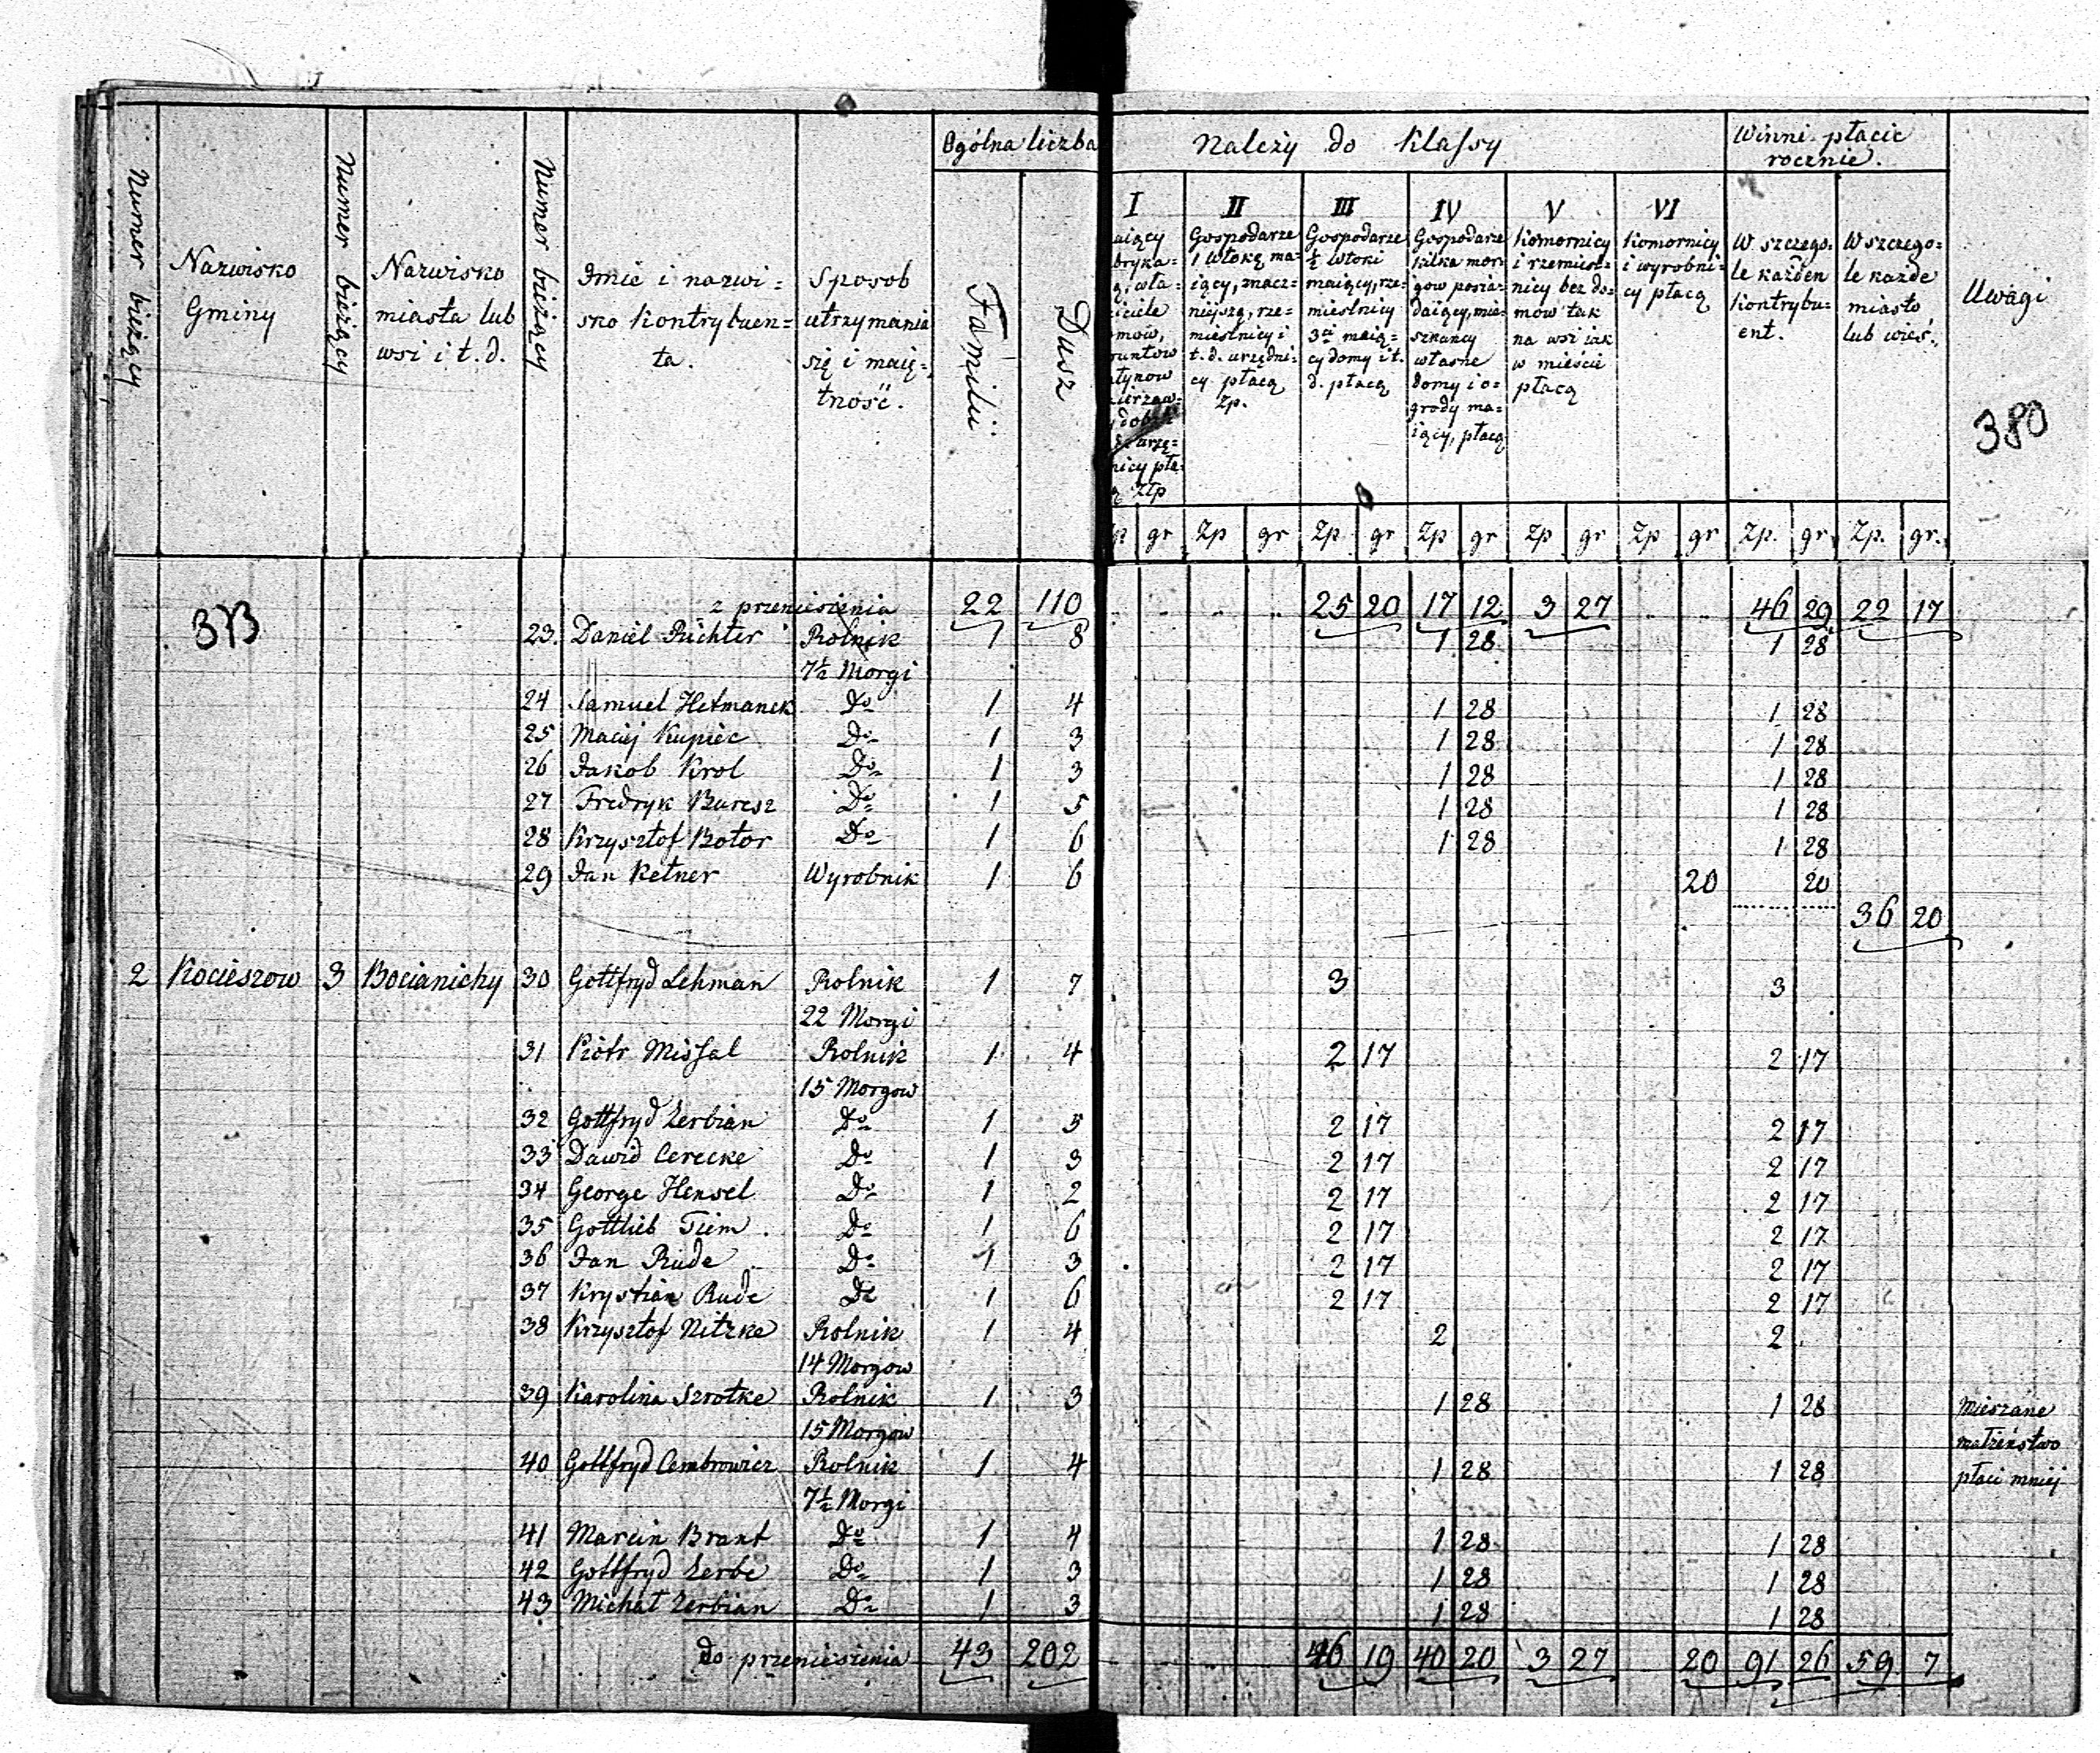 Numer bieżący
Nazwisko
Gminy
Numer bieżący
Nazwisko
miasta lub
wsi i t. d.
Numer bieżący
Imie i nazwi=
sko kontrybuen=
ta.
Sposob
utrzymania
się i maię=
tność.
Ogólna liczba
Familii
Dusz
Należy do Klassy
I
Zp
gr
II
Gospodarze
1 włokę ma=
iący, znacz=
niejszą, rze=
mieslnicy i
t. d. urzędni=
cy płacą
Zp.
Zp gr
III
Gospodarze
½ włoki
maiący, rze=
mieslnicy
3ci maią=
cy domy i t.
d. płacą
Zp. gr
IV
Gospodarze
kilka mor=
gow posia=
daiący, mie=
szkancy
własne
domy i o=
grody ma=
iący, płacą
Zp gr
V
Komornicy
i rzemiesl=
nicy bez do=
mow tak
na wsi iak
w mieście
płacą
Zp gr
VI
Komornicy
i wyrobni=
cy płacą
Zp gr
Winni płacic
rocznie.
W szczego=
le każden
Kontrybu=
ent.
Zp. gr
W szczego=
le każde
miasto
lub wieś.
Zp. gr.
Uwagi
380
373
z przeniesienia 22 110 25 20 17 12 3 27 46 29 22 17
23. Daniel Richter Rolnik 1 8 1 28 1 28
7½ Morgi
24 Samuel Hetmanek Do 1 4 1 28 1 28
25 Maciej Kupiec Do 1 3 1 28 1 28
26 Jakob Krol Do 1 3 1 28 1 28
27 Fredryk Buresz Do 1 5 1 28 1 28
28 Krzysztof Botor Do 1 6 1 28 1 28
29 Jan Ketner Wyrobnik 1 6 20 20
36 20
2 Kocieszow 3 Bocianichy 30 Gottfryd Lehman Rolnik 1 7 3 3
22 Morgi
31 Piotr Missal Rolnik 1 4 2 17 2 17
15 Morgow
32 Gottfryd Zerbian Do 1 5 2 17 2 17
33 Dawid Cerecke Do 1 3 2 17 2 17
34 George Hensel Do 1 2 2 17 2 17
35 Gottlieb Tiem Do 1 6 2 17 2 17
36 Jan Rude Do 1 3 2 17 2 17
37 Krystian Rude Do 1 6 2 17 2 17
38 Krzysztof Nitzke Rolnik 1 4 2 2
14 Morgow
39 Karolina Szrotke Rolnik 1 3 1 28 1 28 mieszane
15 Morgow małzeństwo
40 Gottfryd Cembrowicz Rolnik 1 4 1 28 1 28 płaci mniej
7½ Morgi
41 Marcin Brant Do 1 4 1 28 1 28
42 Gottfryd Zerbe Do 1 3 1 28 1 28
43 Michał Zerbian Do 1 3 1 28 1 28
do przeniesienia 43 202 46 19 40 20 3 27 20 91 26 59 7